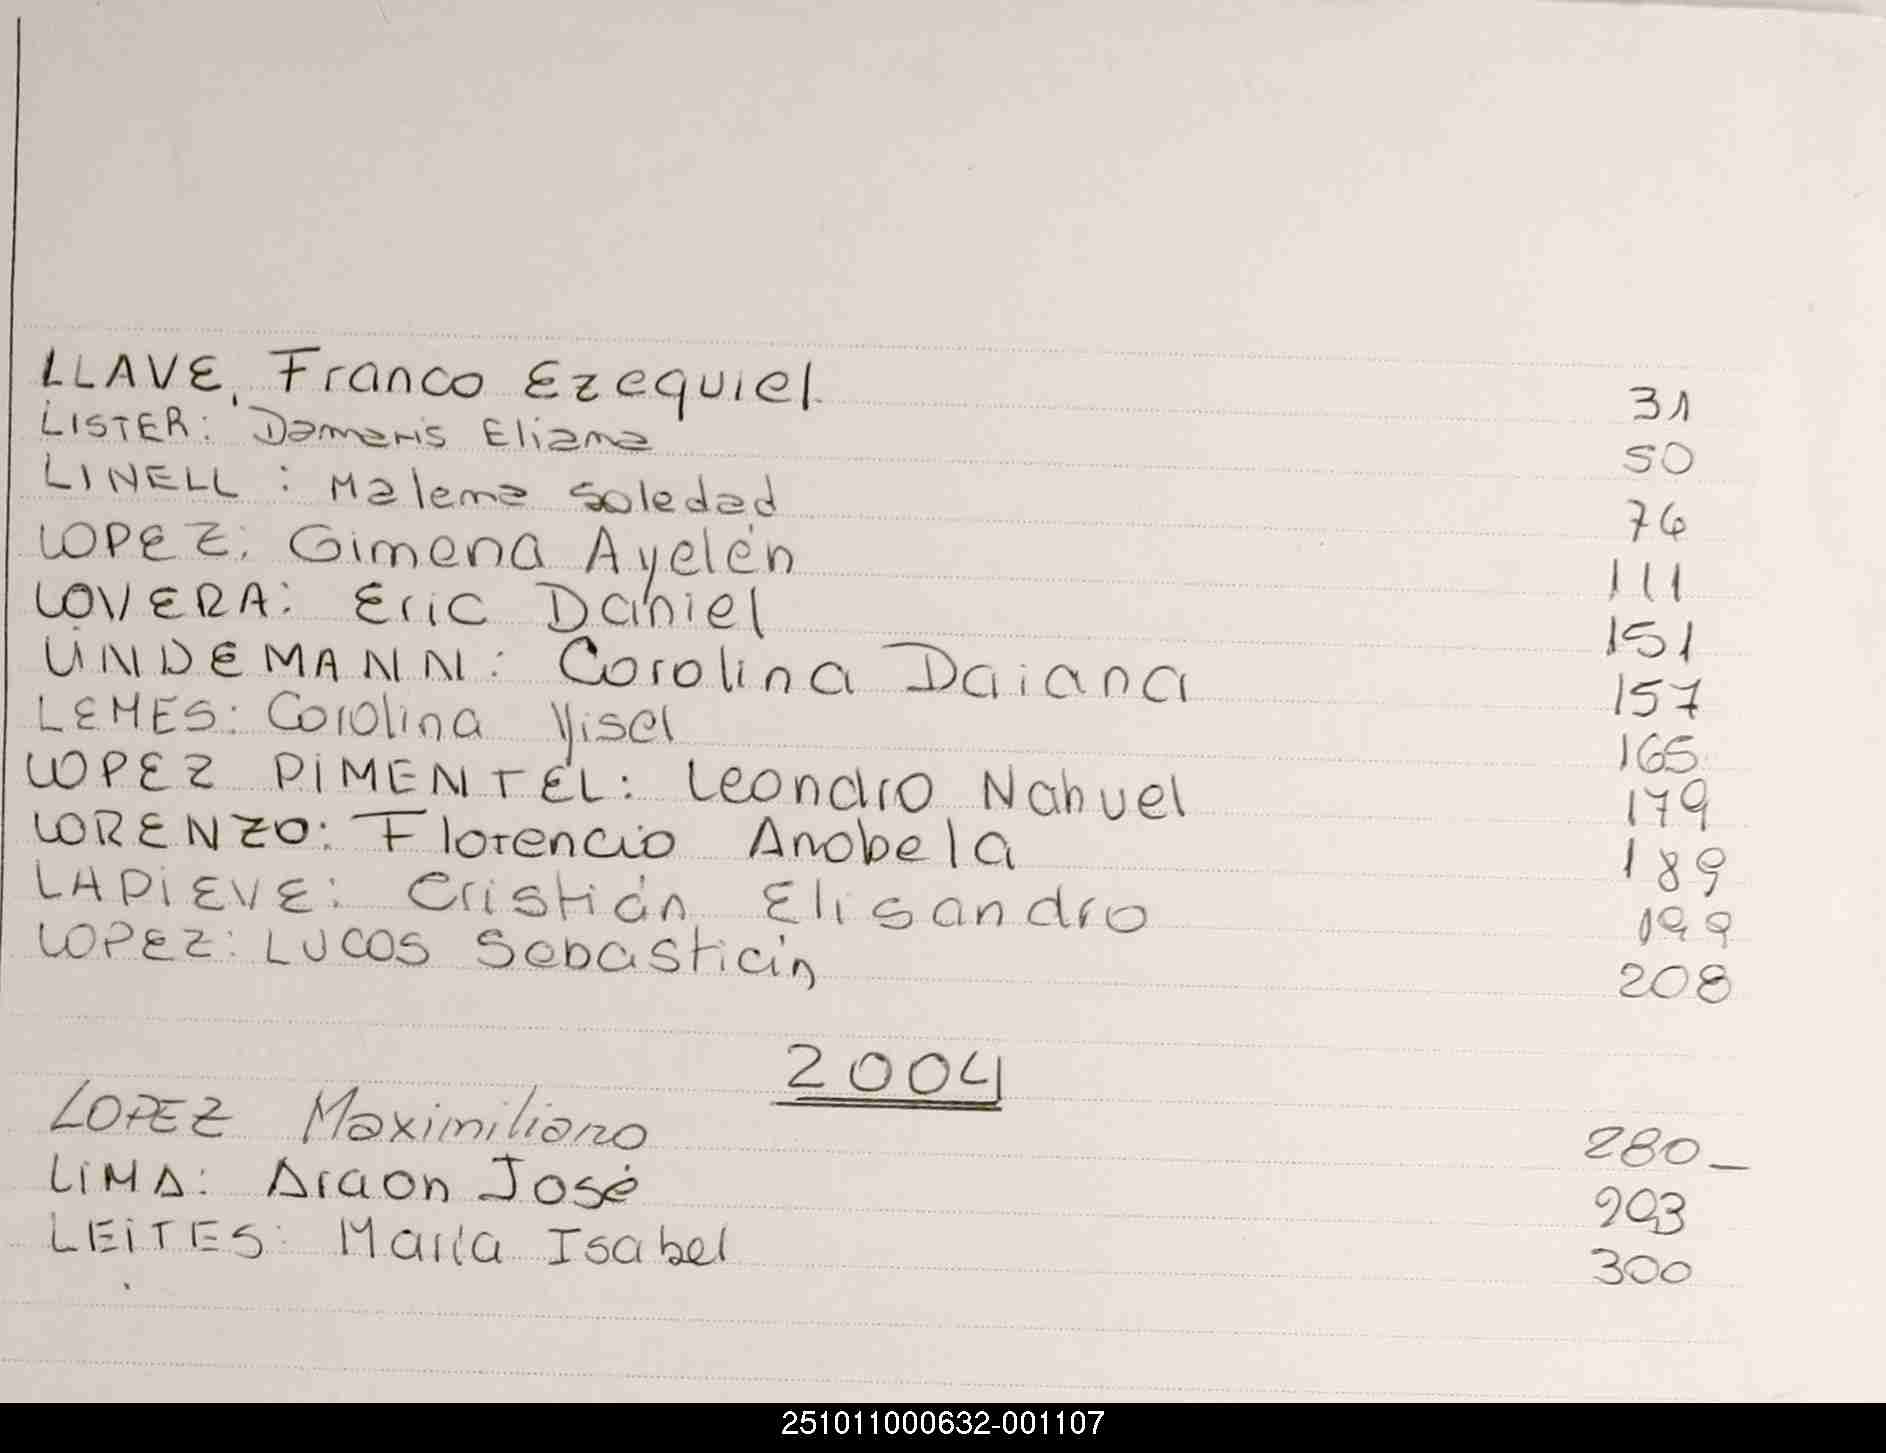 LLAVE, Franco Ezequiel 31
LISTER: Damaris Eliana 50
LINELL : Malena Soledad 76
LOPEZ: Gimena Ayelén 111
LOVERA: Eric Daniel 151
LINDEMANN: Carolina Daiana 157
LEMES: Carolina Yisel 165
LOPEZ PIMENTEL: Leandro Nahuel 179
LORENZO: Florencia Anabela 189
LAPIEVE: Cristián Elisandro 199
LOPEZ: Lucas Sebastián 208
2004
LOPEZ Maximiliano 280_
LIMA: Araon José 293
LEITES: María Isabel 300
251011000632-001107